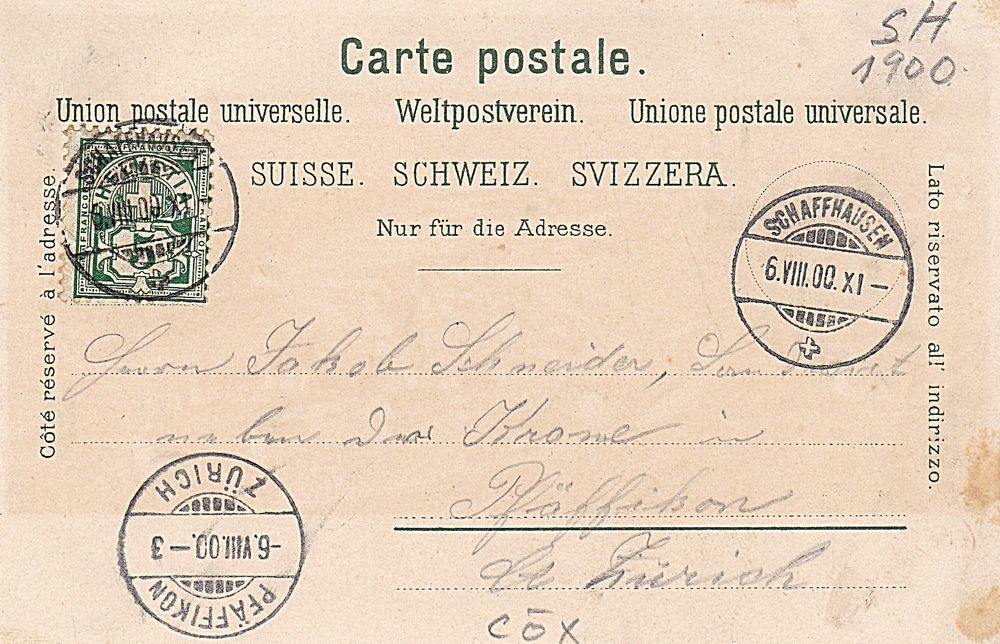 SH
1900
Carte postale.
Union postale universelle. Weltpostverein. Unione postale universale.
SUISSE. SCHWEIZ. SVIZZERA.
Nur für die Adresse.
Côté réservé à l'adresse.
Lato riservato all' indirizzo.
FRANCO HELVETIA FRANCO
5
SCHAFFHAUSEN
6.VIII.00.XI—
Herrn Jakob Schneider,
neben der Krone in
Pfäffikon
Ct Zürich
ZÜRICH
-6.VIII.00.—3
PFÄFFIKON
cōx